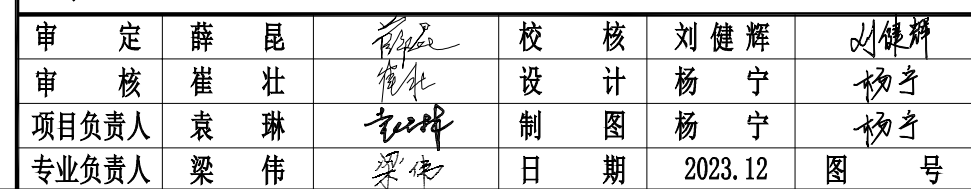 审 定 薛 昆 薛昆 校 核 刘健辉 刘健辉
审 核 崔 壮 崔壮 设 计 杨 宁 杨宁
项目负责人 袁 琳 制 图 杨 宁 杨宁
专业负责人 梁 伟 梁伟 日 期 2023.12 图 号